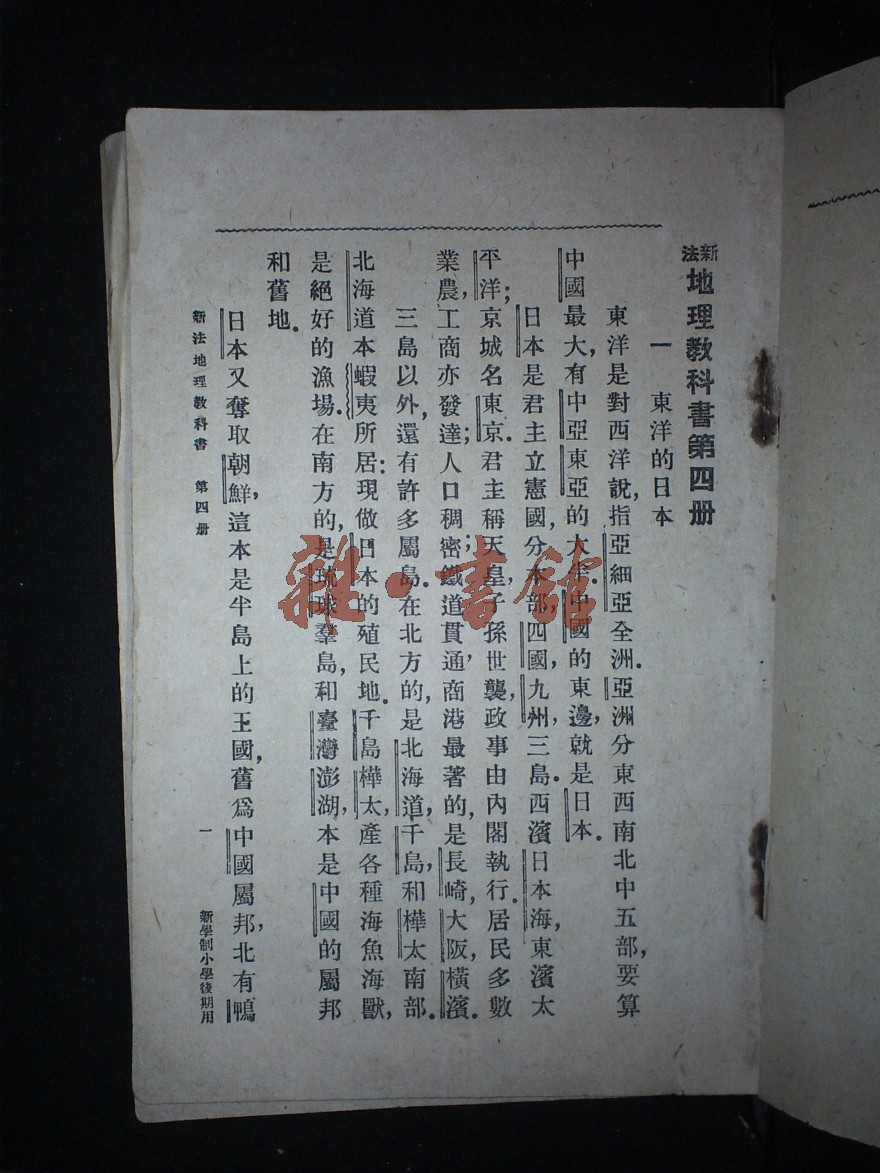 新法地理教科書第四册
一 東洋的日本
東洋是對西洋說,指亞細亞全洲.亞洲分東西南北中五部,要算
中國最大,有中亞東亞的大半.中國的東邊,就是日本.
日本是君主立憲國,分本部,四國,九州,三島.西濱日本海,東濱太
平洋;京城名東京.君主稱天皇,子孫世襲,政事由內閣執行.居民多數
業農,工商亦發達;人口稠密;鐵道貫通,商港最著的,是長崎,大阪,橫濱.
三島以外,還有許多屬島.在北方的,是北海道,千島,和樺太南部.
北海道本蝦夷所居:現做日本的殖民地.千島樺太,產各種海魚海獸,
是絕好的漁場.在南方的,是琉球羣島,和臺灣澎湖,本是中國的屬邦
和舊地.
日本又奪取朝鮮,這本是半島上的王國,舊爲中國屬邦,北有鴨
新法地理教科書 第四册 一 新學制小學後期用
雜·書館